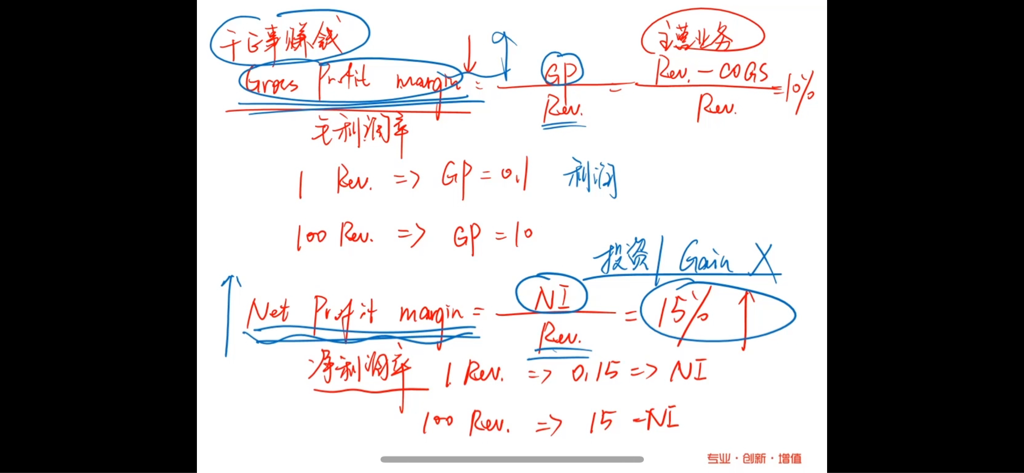 干正事赚钱
Gross Profit margin = GP / Rev. = Rev. - COGS / Rev. = 10%
主营业务
毛利润率
1 Rev. => GP = 0.1 利润
100 Rev. => GP = 10
投资 / Gain X
Net Profit margin = NI / Rev. = 15%
净利润率
1 Rev. => 0.15 => NI
100 Rev. => 15 - NI
专业·创新·增值